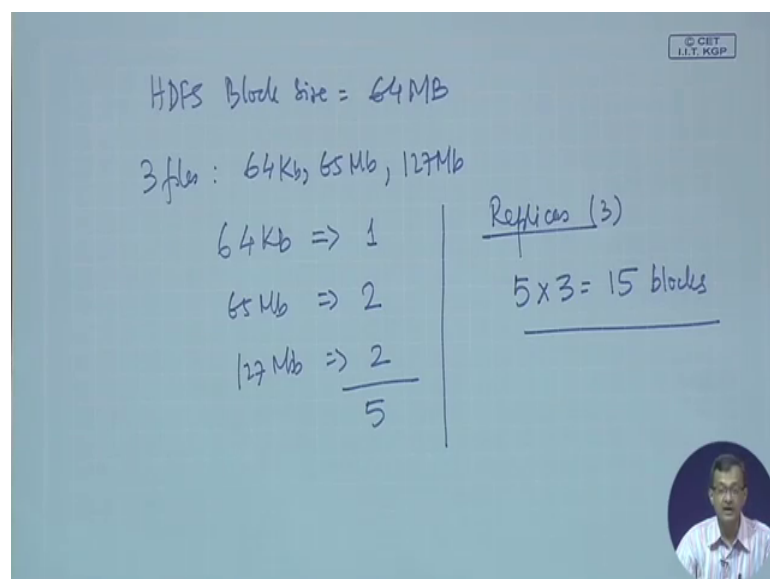 © CET
I.I.T. KGP
HDFS Block Size = 64MB
3 files : 64Kb, 65Mb, 127Mb
64Kb => 1
65Mb => 2
127Mb => 2
5
Replicas (3)
5 x 3 = 15 blocks